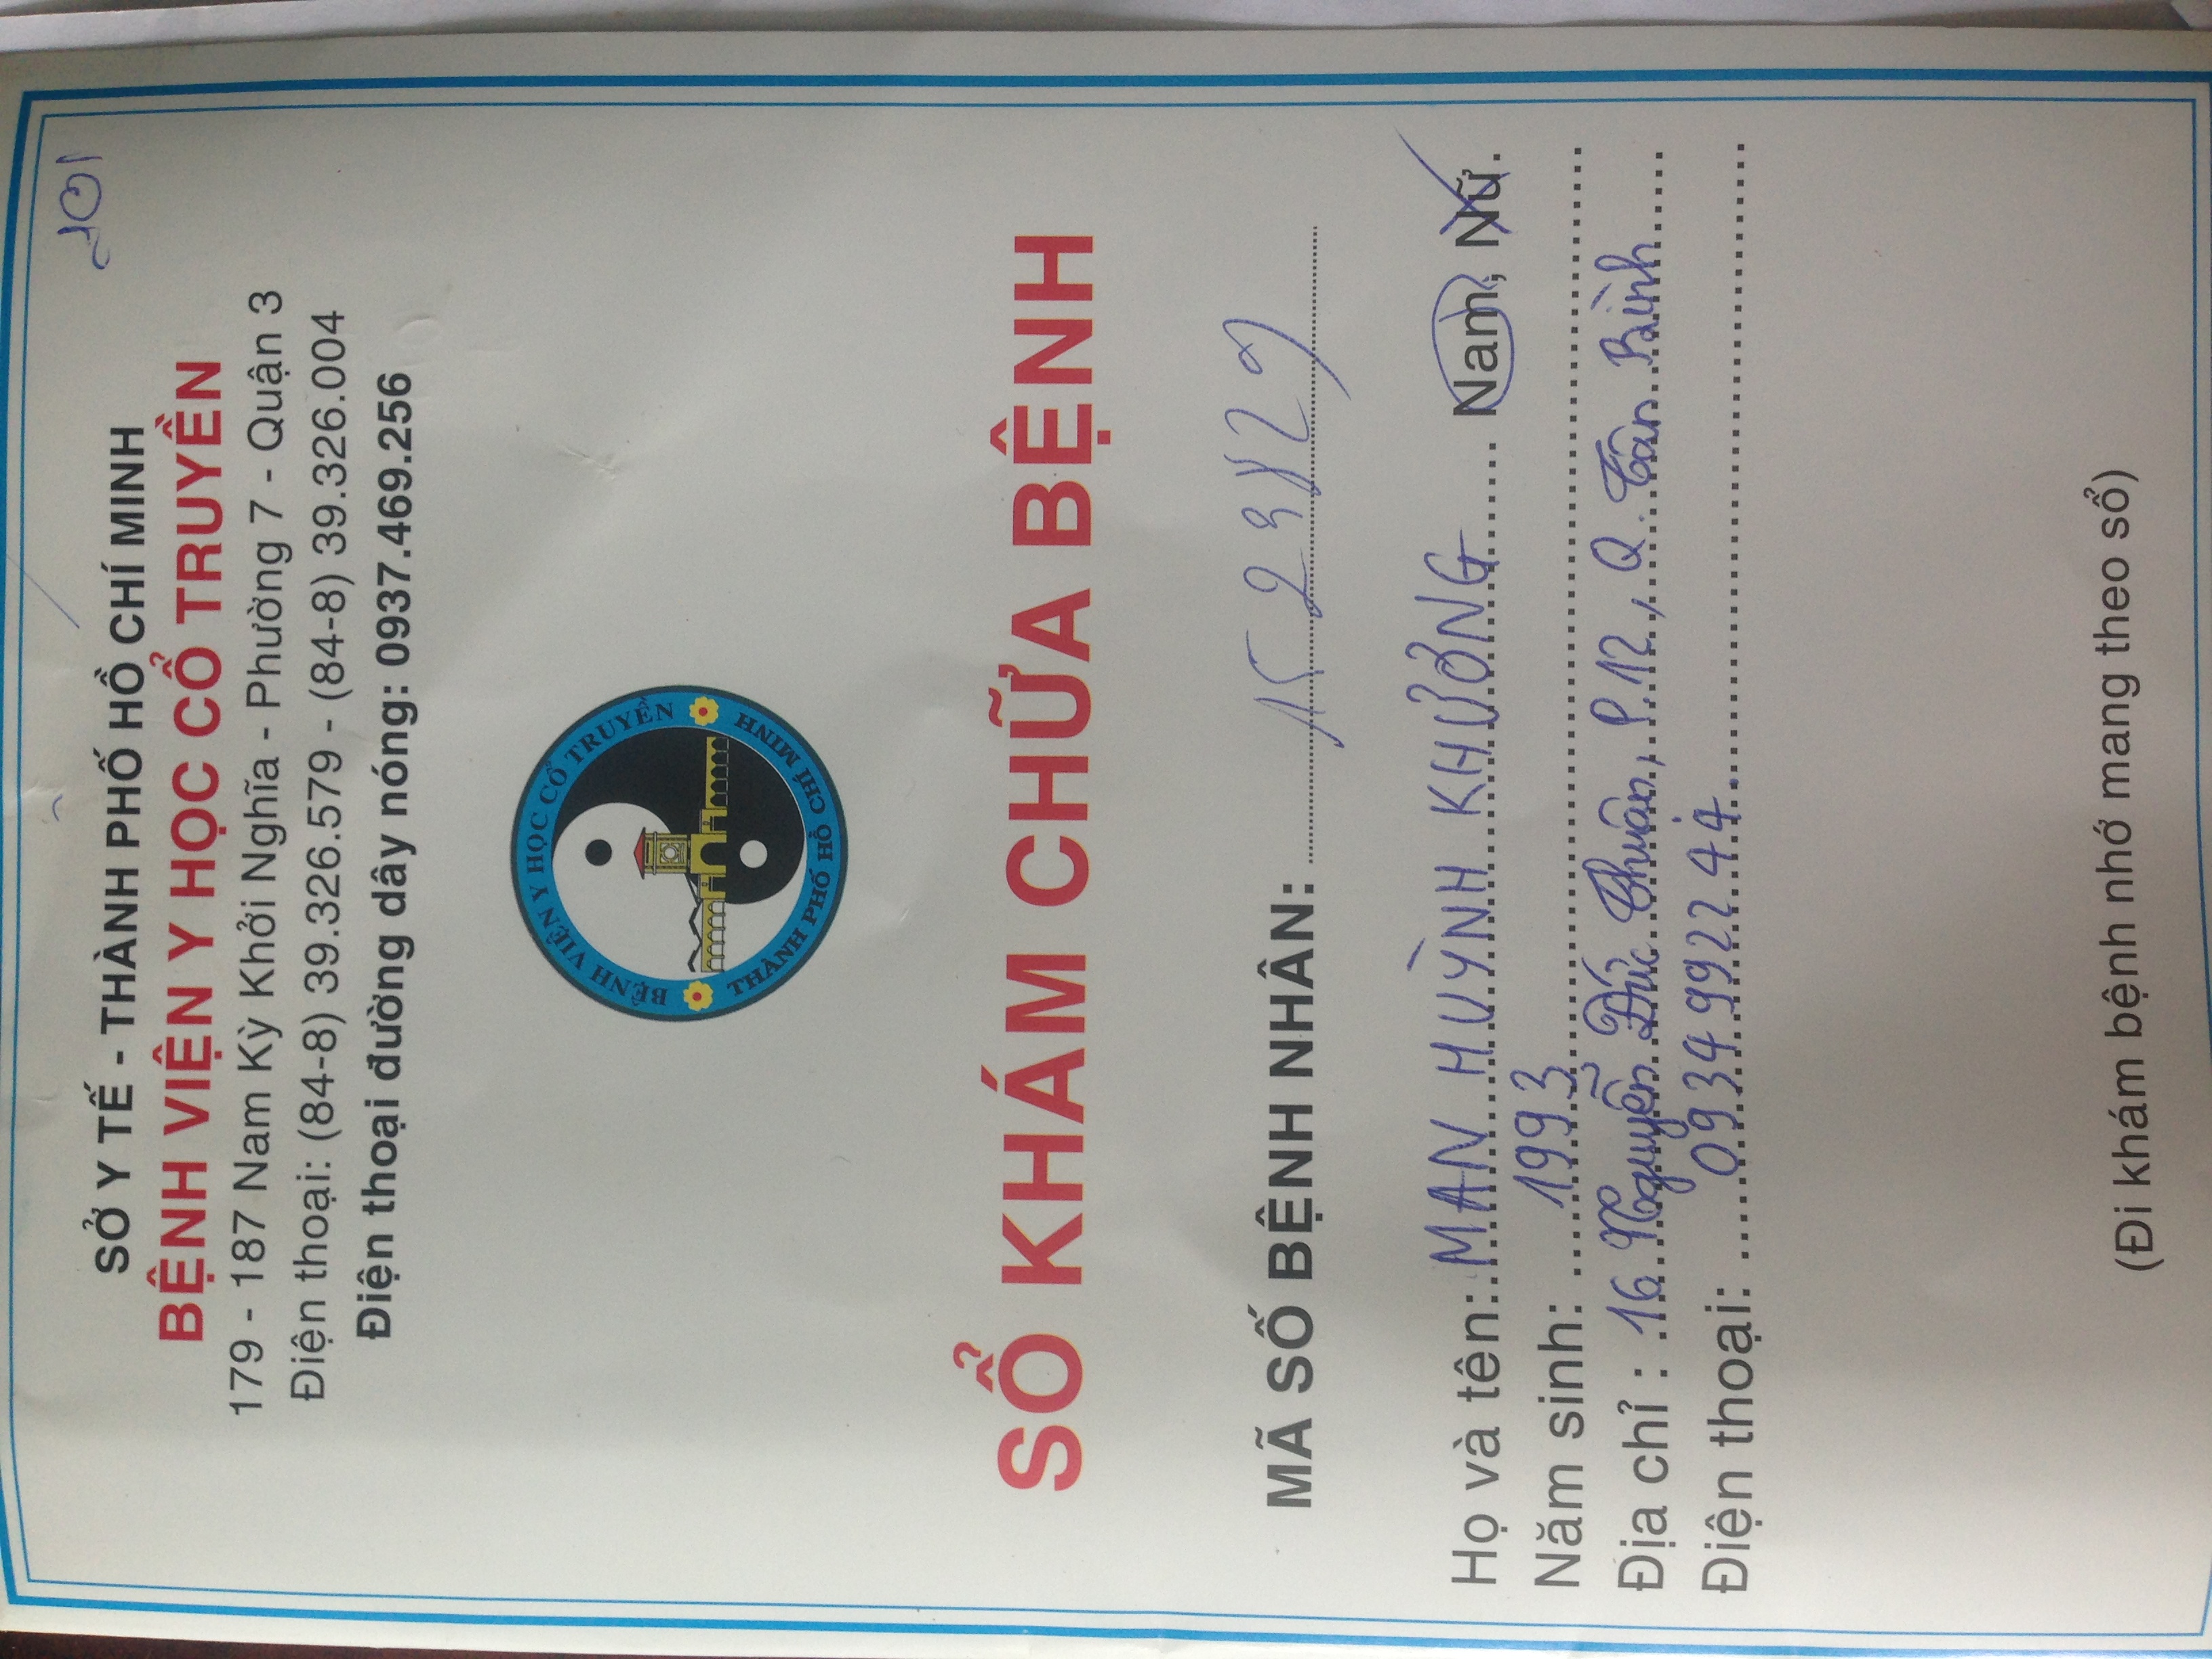 101
SỞ Y TẾ - THÀNH PHỐ HỒ CHÍ MINH
BỆNH VIỆN Y HỌC CỔ TRUYỀN
179 - 187 Nam Kỳ Khởi Nghĩa - Phường 7 - Quận 3
Điện thoại: (84-8) 39.326.579 - (84-8) 39.326.004
Điện thoại đường dây nóng: 0937.469.256
BỆNH VIỆN Y HỌC CỔ TRUYỀN
THÀNH PHỐ HỒ CHÍ MINH
SỔ KHÁM CHỮA BỆNH
MÃ SỐ BỆNH NHÂN: 1523829
Họ và tên: MAN HUỲNH KHƯƠNG Nam, Nữ.
Năm sinh: 1993
Địa chỉ : 16 Nguyễn Đức Thuận, P.12, Q. Tân Bình
Điện thoại: 0934992244
(Đi khám bệnh nhớ mang theo sổ)